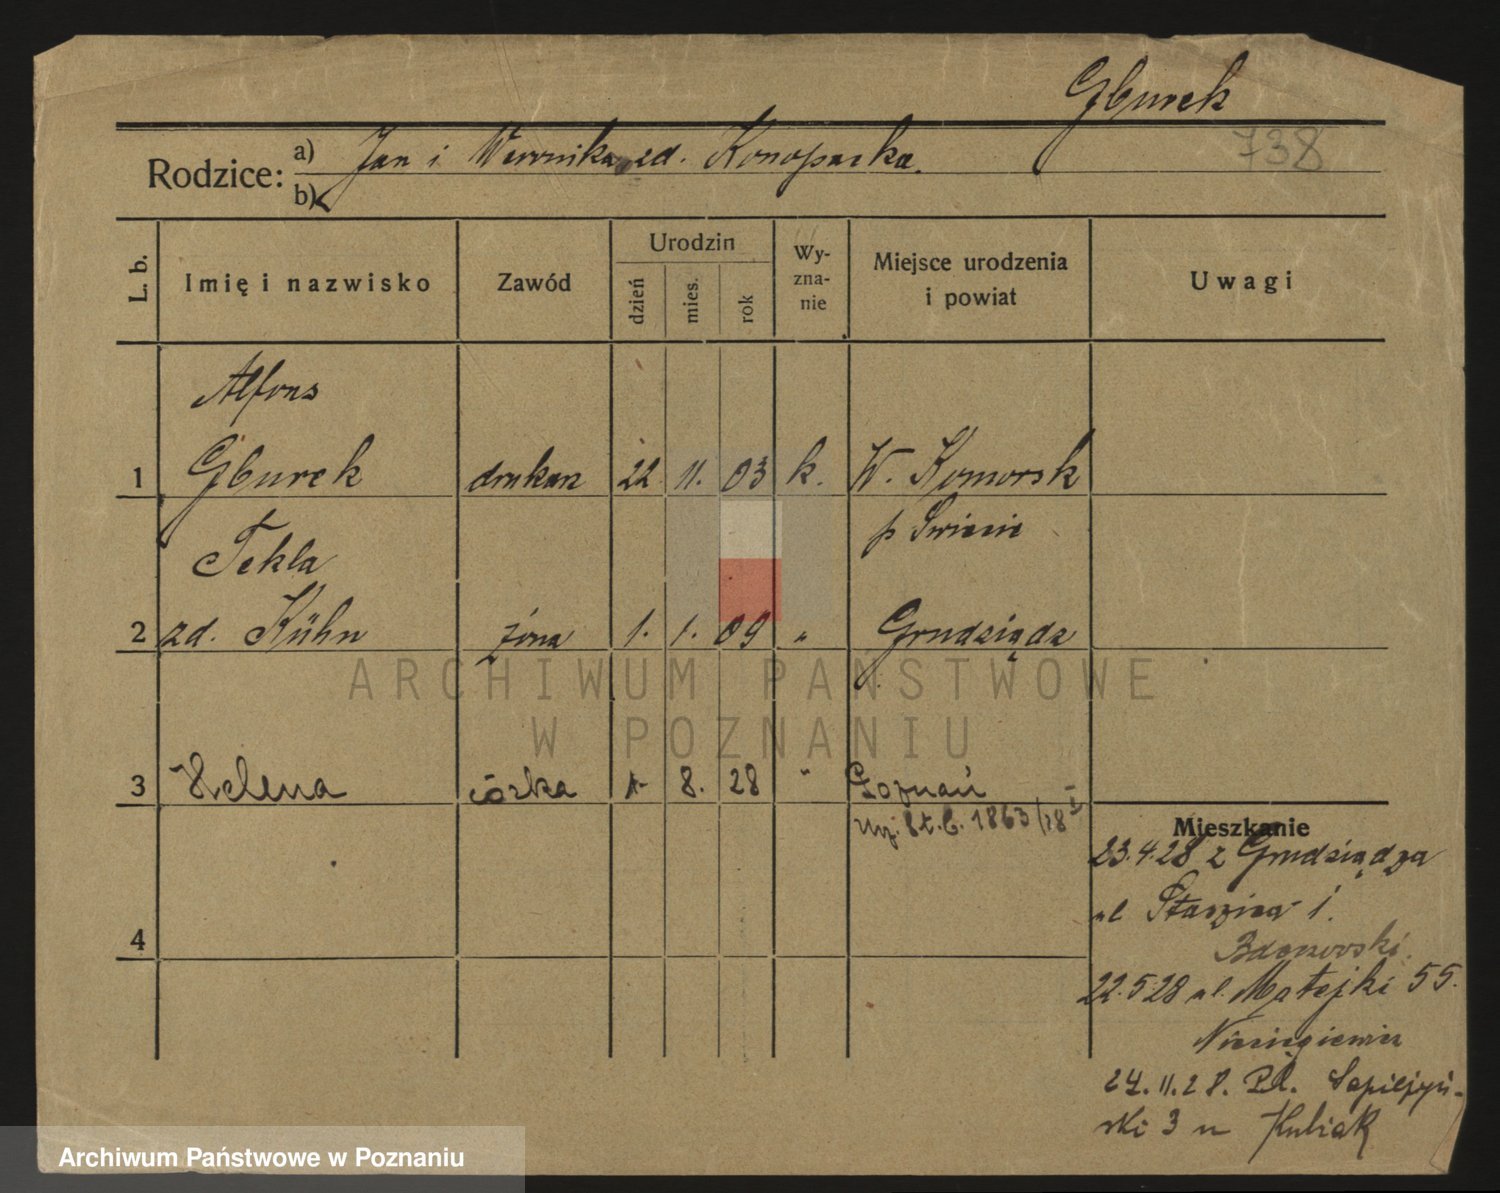 Gburek
738
Rodzice: a) Jan i Weronika zd. Konopacka.
b)
L. b.
Imię i nazwisko
Zawód
Urodzin
dzień
mies.
rok
Wy-
zna-
nie
Miejsce urodzenia
i powiat
Uwagi
Alfons
1 Gburek drukarz 22 11. 03 k. W. Komorsk
p Swiecie
Tekla
2 zd. Kühn żona 1. 1. 09 " Grudziądz
3 Helena córka 1. 8. 28 " Poznań
St. C. 1863/28 I
4
Mieszkanie
23.4.28 z Grudziądza
ul Staszica 1.
22.5.28 ul. Matejki 55.
24.11.28. Pl. Sapieżyń-
ski 3 u Kubiak
ARCHIWUM PAŃSTWOWE
W POZNANIU
Archiwum Państwowe w Poznaniu